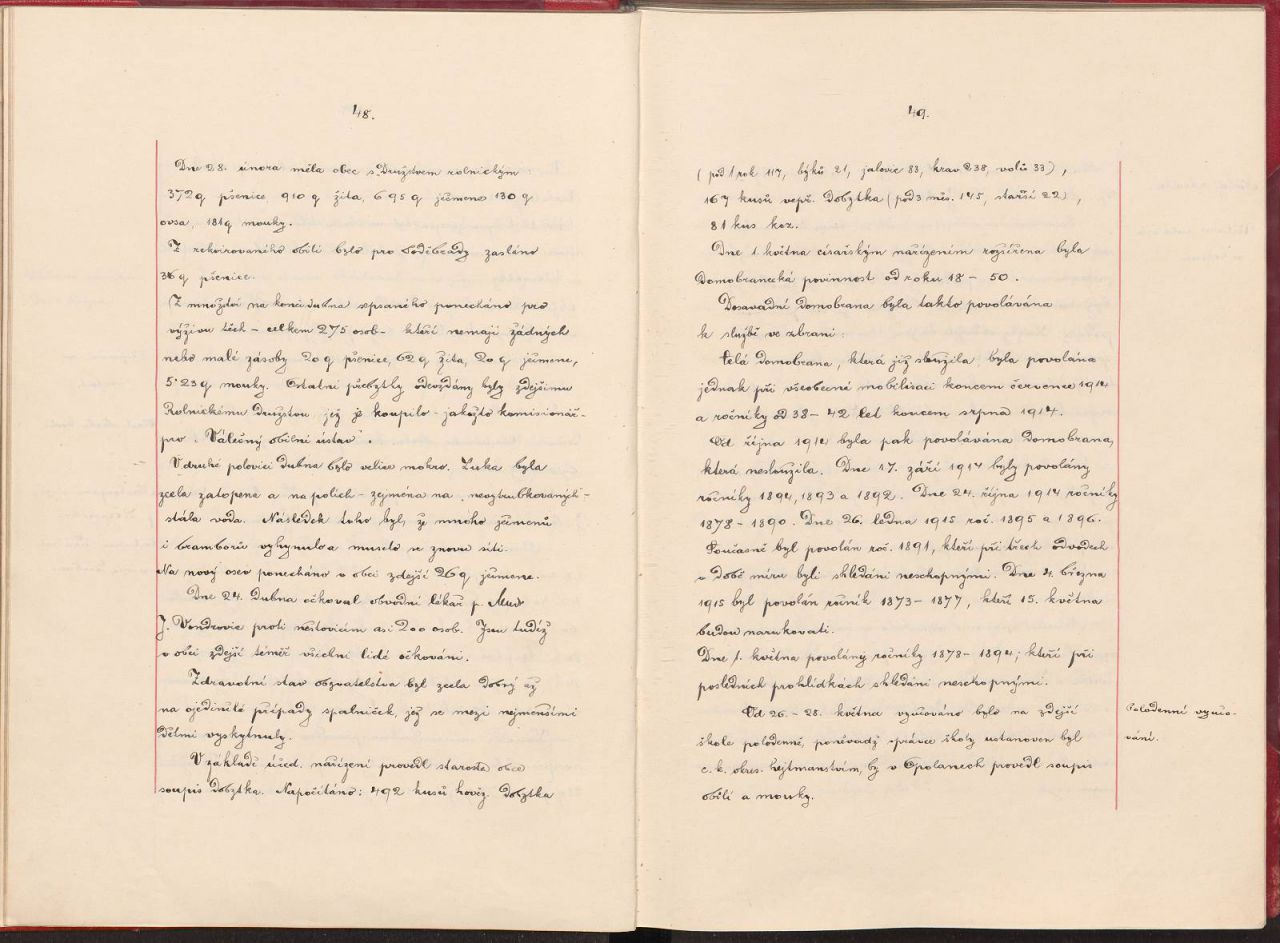 48.
Dne 28. února měla obec s Družstvem rolnickým:
372 q pšenice, 910 q žita, 695 q ječmene 130 q
ovsa, 181 q mouky.
Z rekvirovaného obilí bylo pro Poděbrady zasláno
36 q pšenice.
(Z množství na konci dubna sepsaného ponecháno pro
výživu těch - celkem 275 osob - kteří nemají žádných
nebo malé zásoby 20 q pšenice, 62 q žita, 20 q ječmene,
5·23 q mouky. Ostatní přebytky odevzdány byly zdejšímu
Rolnickému Družstvu, jež je koupilo - jakožto komisionář -
pro „Válečný obilní ústav".
V druhé polovici dubna bylo velice mokro. Luka byla
zcela zatopena a na polích - zejména na neoztrubkovaných -
stála voda. Následek toho byl, že mnoho ječmenů
i bramborů vyhynulo a muselo se znovu síti.
Na nový osev ponecháno v obci zdejší 26 q ječmene.
Dne 24. dubna očkoval obvodní lékař p. Mudr
J. Vondrovic proti neštovicím asi 200 osob. Jsou tudíž
v obci zdejší téměř všichni lidé očkováni.
Zdravotní stav obyvatelstva byl zcela dobrý až
na ojedinělé případy spalniček, jež se mezi nejmenšími
dětmi vyskytnuly.
V základě úřed. nařízení provedl starosta obce
soupis dobytka. Napočítáno: 492 kusů hověz. dobytka
49.
(pod 1 rok 117, býků 21, jalovic 83, krav 238, volů 33),
167 kusů vepř. dobytka (pod 3 měs. 145, starší 22),
81 kus koz.
Dne 1. května císařským nařízením rozšířena byla
domobranecká povinnost od roku 18 - 50.
Dosavadní domobrana byla takto povolávána
k službě ve zbrani:
Celá domobrana, která již sloužila, byla povolána
jednak při všeobecné mobilisaci koncem července 1914
a ročníky od 38 - 42 let koncem srpna 1914.
Od října 1914 byla pak povolávána domobrana,
která nesloužila. Dne 17. září 1914 byly povolány
ročníky 1894, 1893 a 1892. Dne 24. října 1914 ročníky
1878 - 1890. Dne 26. ledna 1915 roč. 1895 a 1896.
Současně byl povolán roč. 1891, kteří při třech odvodech
v době míru byli shledáni neschopnými. Dne 4. března
1915 byl povolán ročník 1873 - 1877, kteří 15. května
budou narukovati.
Dne 1. května povolány ročníky 1878 - 1894; kteří při
posledních prohlídkách shledáni neschopnými.
Od 26. - 28. května vyučováno bylo na zdejší
škole polodenně, poněvadž správce školy ustanoven byl
c. k. okres. hejtmanstvím, by v Opolanech provedl soupis
obilí a mouky.
Polodenní vyučo-
vání.